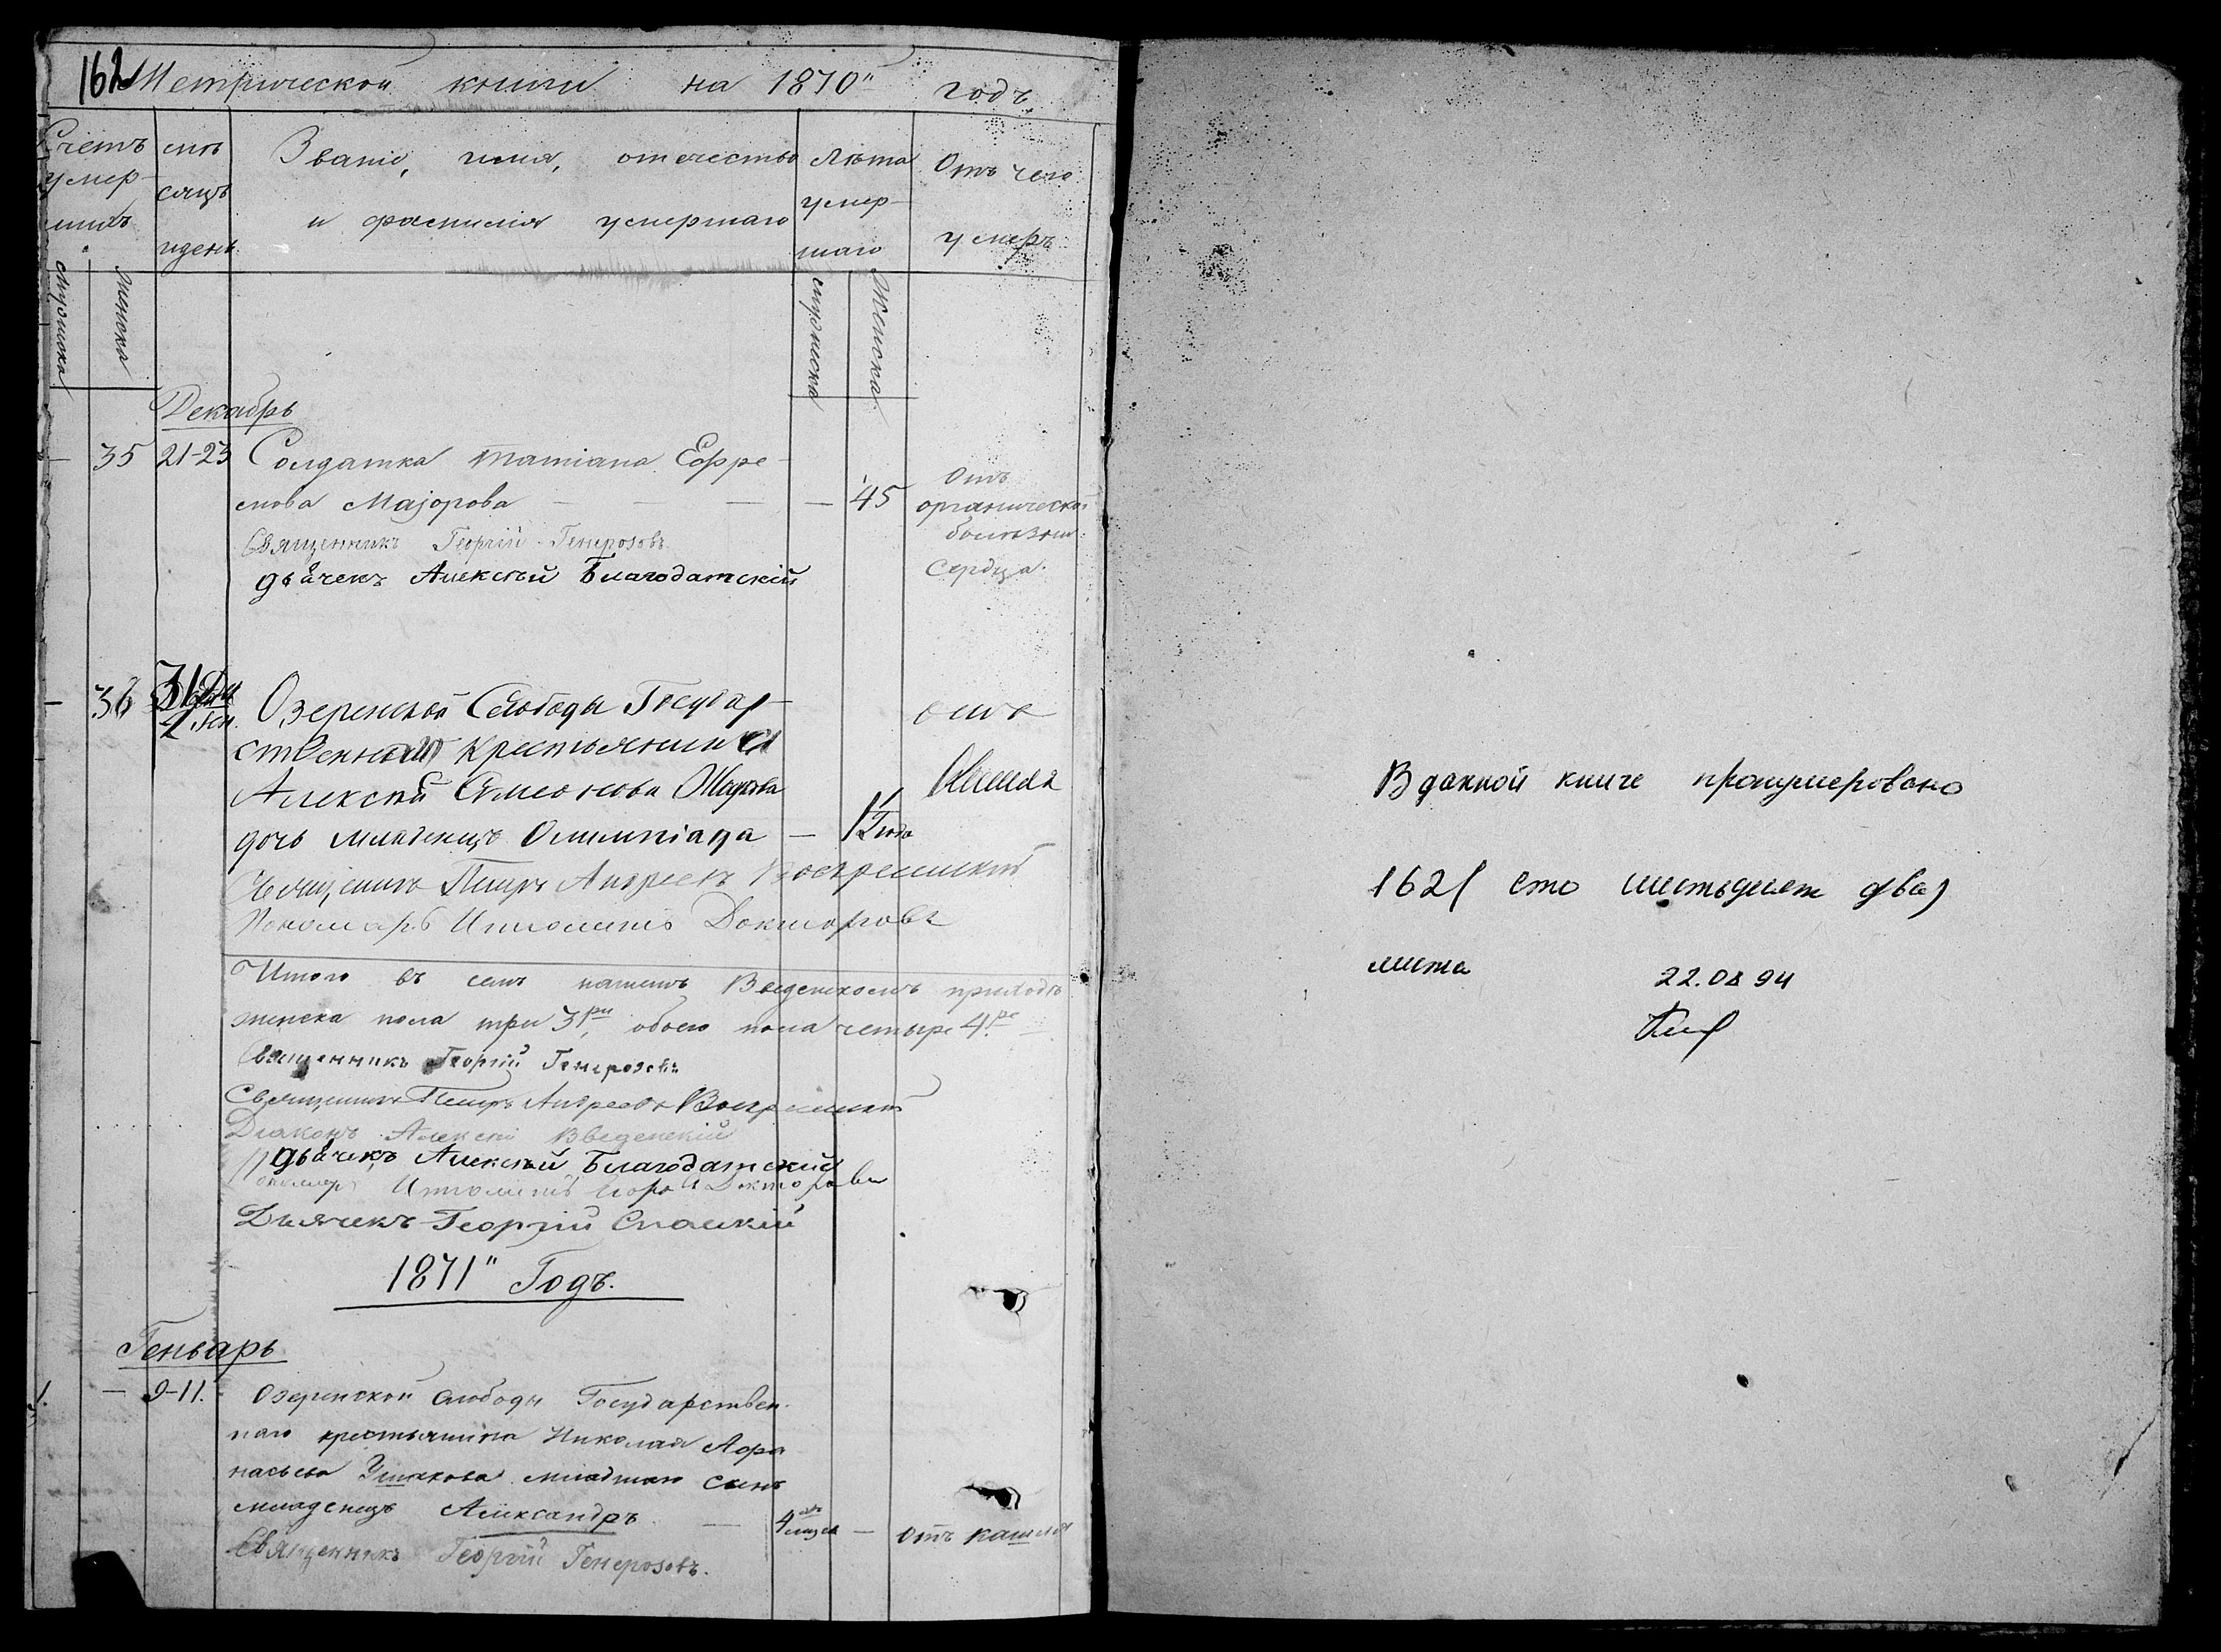 162
Метрической книги на 1870" годъ
Счетъ умершихъ
мѣсяцъ и день
Званіе, имя, отечество и фамилія умершаго
Лѣта умершаго
Отъ чего умеръ
мужска
женска
мужска
женска
Декабрь
— 35 21-23 Солдатка Татіана Ефре-
мова Маjорова — — — — 45
Отъ
органической
болѣзни
сердца.
Священникъ Георгій Генерозовъ
дьячекъ Алексѣй Благодатскій
— 36 31 Дек.
2 Ген.
Озеренской Слободы Государ-
ственнаго крестьянина
Алексѣй Симеонова
дочь младенецъ Олимпіада — 1/2 года
отъ
кашля
Священникъ Петръ Андреевъ Воскресенскій
Пономарь Ипполитъ Докторовъ
Итого въ семъ нашемъ Введенскомъ приходѣ
женска пола три 3ри, обоего пола четыре 4ре
Священникъ Георгій Генерозовъ
Священникъ Петръ Андреевъ Воскресенскій
Діаконъ Алексій Введенскій
дьячекъ Алексѣй Благодатскій
Пономарь Ипполитъ Докторовъ
Дьячекъ Георгій Спаскій
1871" Годъ.
Генварь
1. — 9-11. Озеренской слободы Государствен-
наго крестьянина Николая Афа-
насьева Ушакова младшаго сынъ
младенецъ Александръ — 4 мѣсяц. — отъ кашля
Священникъ Георгій Генерозовъ.
В данной книге пронумеровано
162 ( сто шестьдесят два )
листа
22.08 94